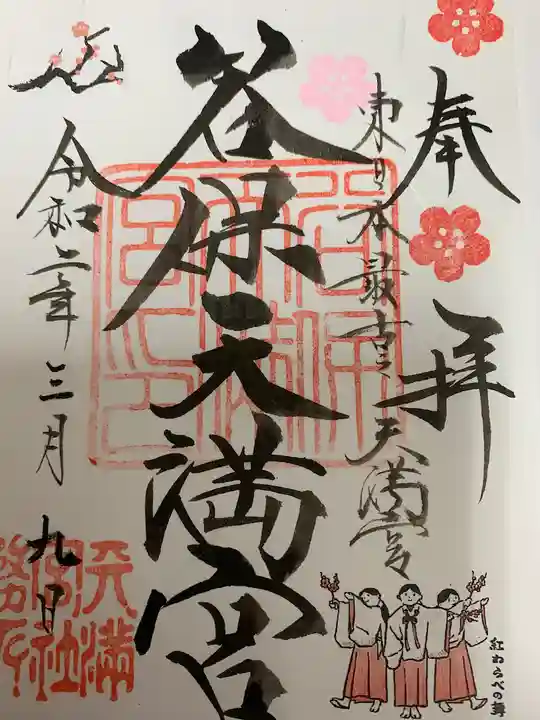 奉拝
東日本最古之天満宮
谷保天満宮
令和二年三月九日
天満宮社務所
紅わらべの舞